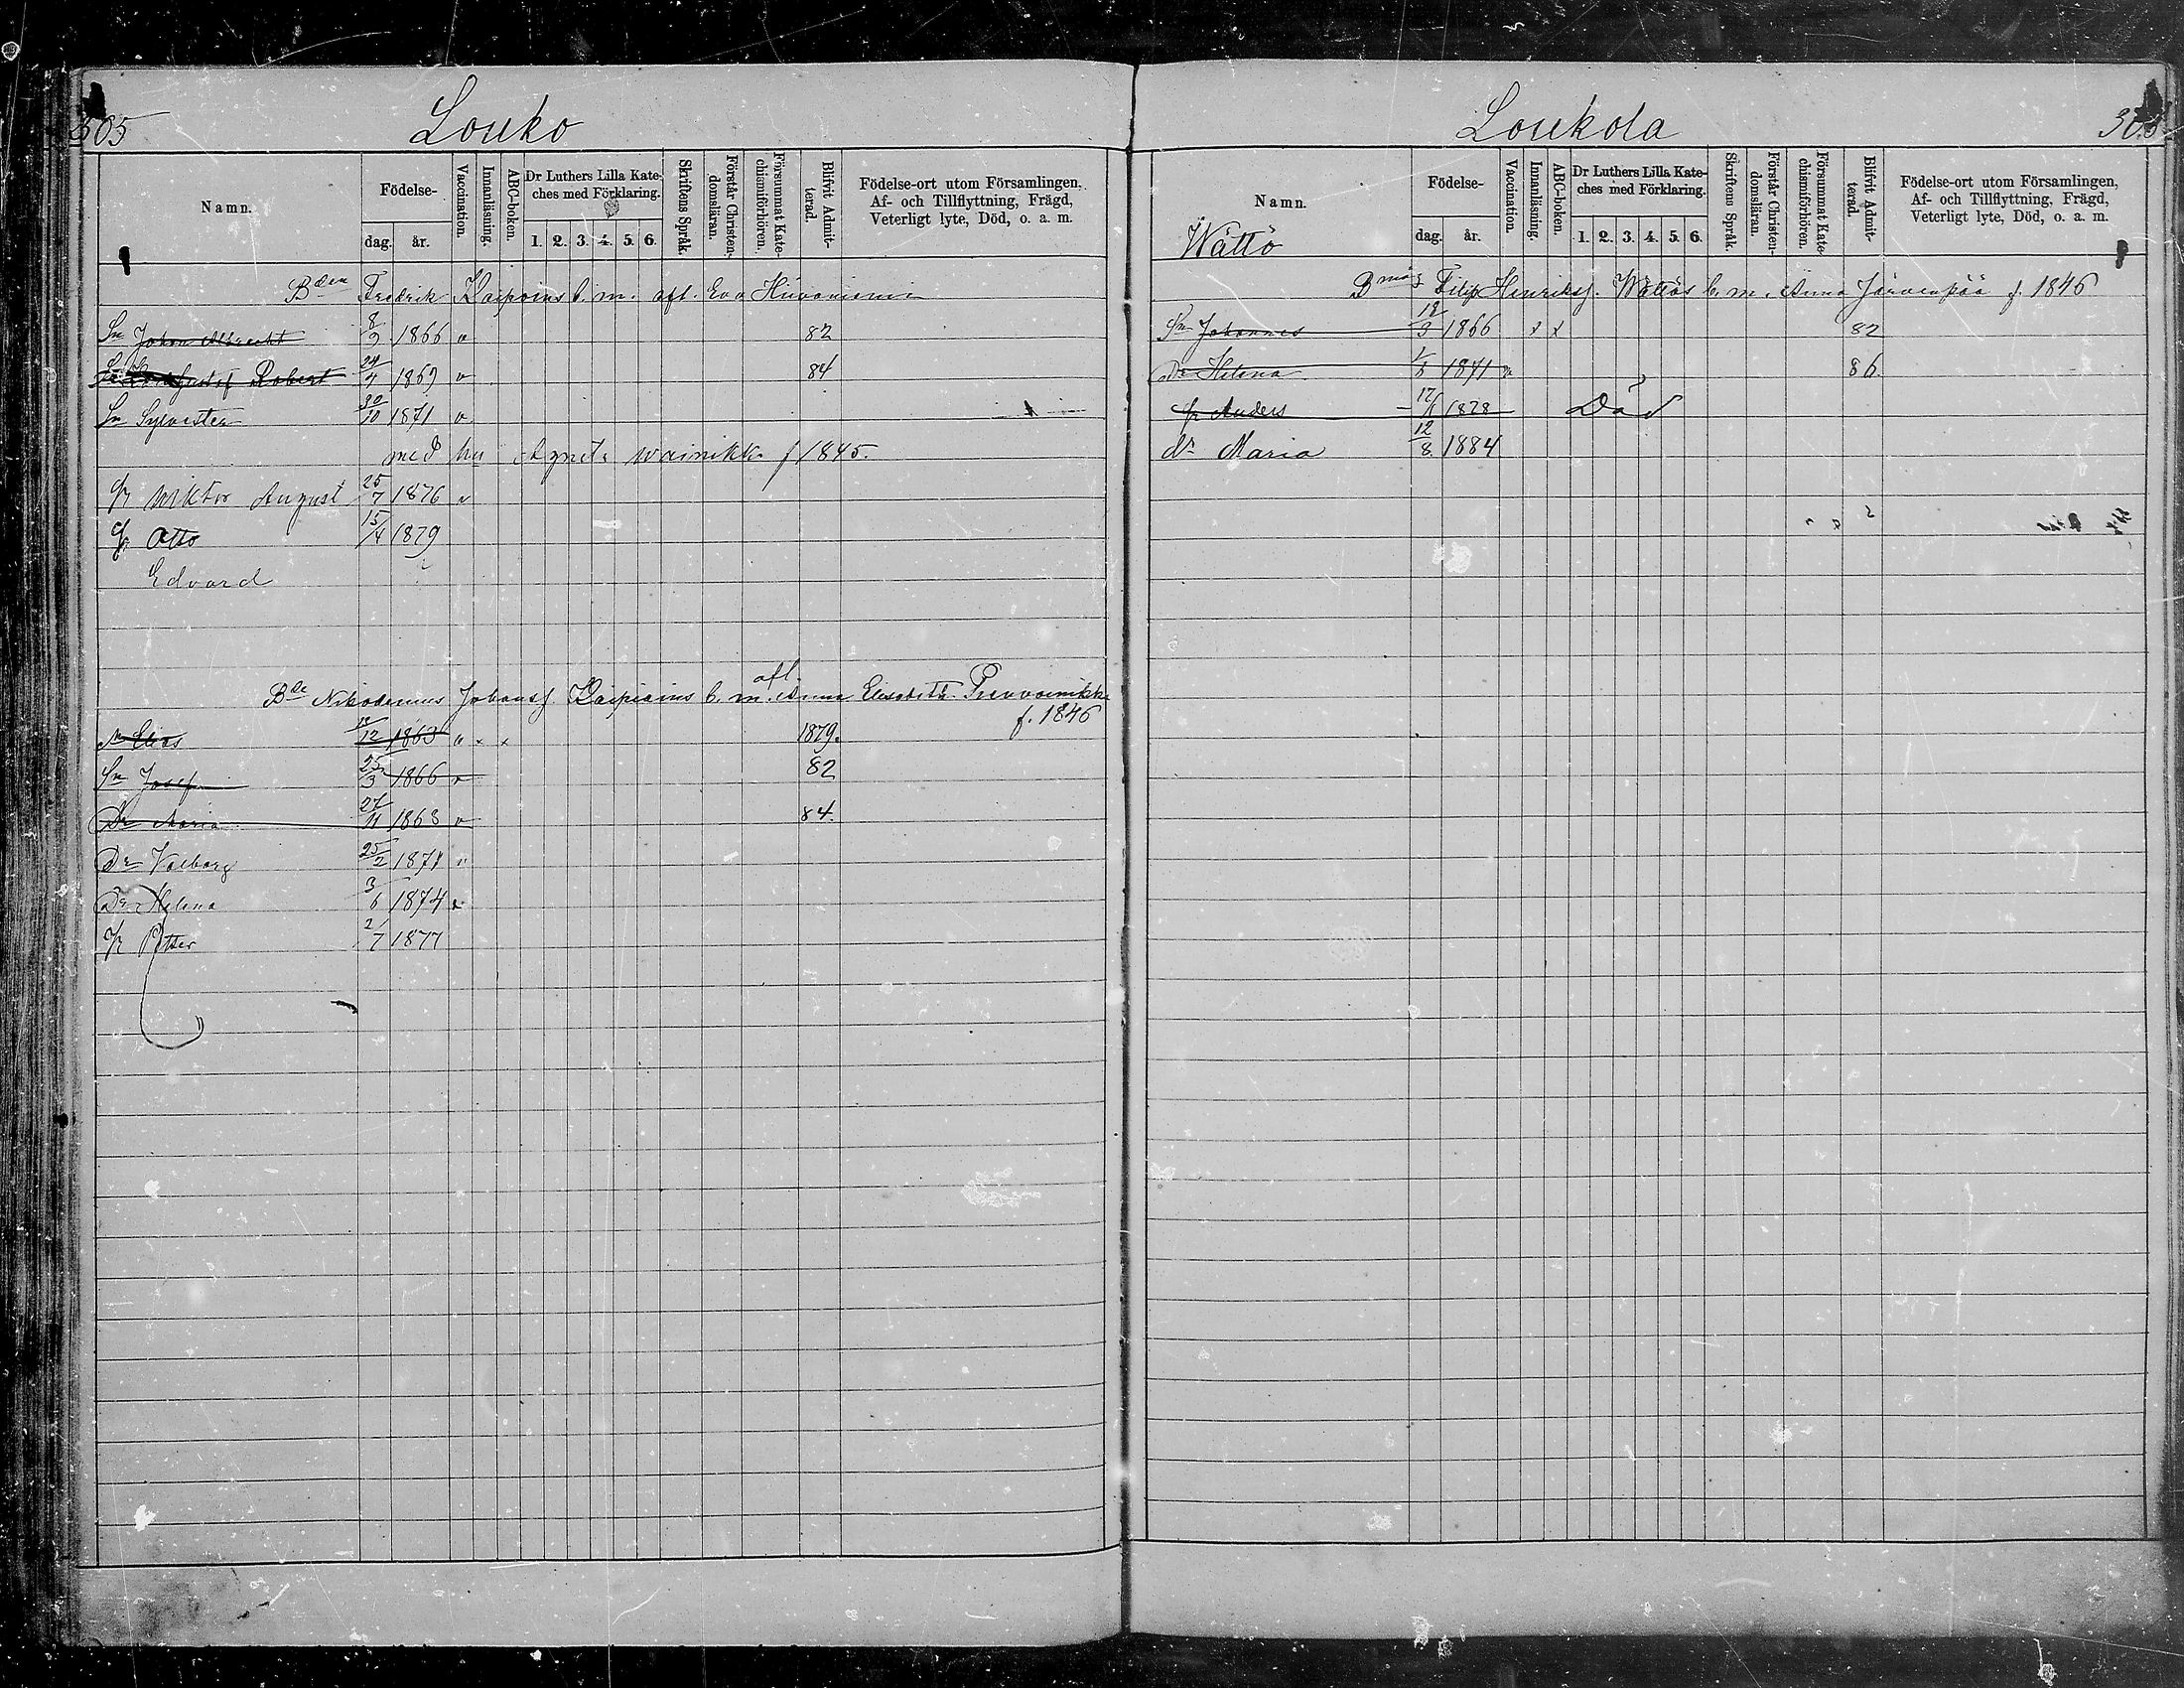 305
Louko
Namn.
Födelse-
dag.
år.
Vaccination.
Innanläsning.
ABC-boken.
Dr Luthers Lilla Kate-
ches med Förklaring.
1. 2. 3. 4. 5. 6.
Skriftens Språk.
Förstår Christen-
domsläran.
Försummat Kate-
chismiförhören.
Blifvit Admit-
terad.
Födelse-ort utom Församlingen,
Af- och Tillflyttning, Frägd,
Veterligt lyte, Död, o. a. m.
Bden Fredrik Kaipoins b. m. afl. Eva
Sn Johan Albrecht 8/9 1866 v 82
Gustaf Robert 24/4 1869 v 84
Sn Sylvester 30/10 1871 v
med hu Agneta Wainikka f 1845.
Sn Wiktor August 25/7 1876 v
Sn Otto 15/4 1879
Edvard
afl.
Bde Nikodemus Johansf. Kaipiains b. m. Anna Elisabeth
f. 1846
Sn Elias 12 1863 v x x 1879.
Sn Josef 25/3 1866 v 82
Dr Maria 27/11 1868 v 84.
Dr Valborg 25/2 1871 v
Dr Helena 3/6 1874 v
Sn Petter 2/7 1877
Loukola
Namn.
Wättö
Födelse-
dag.
år.
Vaccination.
Innanläsning.
ABC-boken.
Dr Luthers Lilla Kate-
ches med Förklaring.
1. 2. 3. 4. 5. 6.
Skriftens Språk.
Förstår Christen-
domsläran.
Försummat Kate-
chismiförhören.
Blifvit Admit-
terad.
Födelse-ort utom Församlingen,
Af- och Tillflyttning, Frägd,
Veterligt lyte, Död, o. a. m.
Filip Henriksf. Wättös b. m. Anna Järvenpää f. 1846
Sn Johannes 12/3 1866 x x 82
Dr Helena 1871 v 86.
Sn Anders 1878 Död
dr Maria 12/8 1884